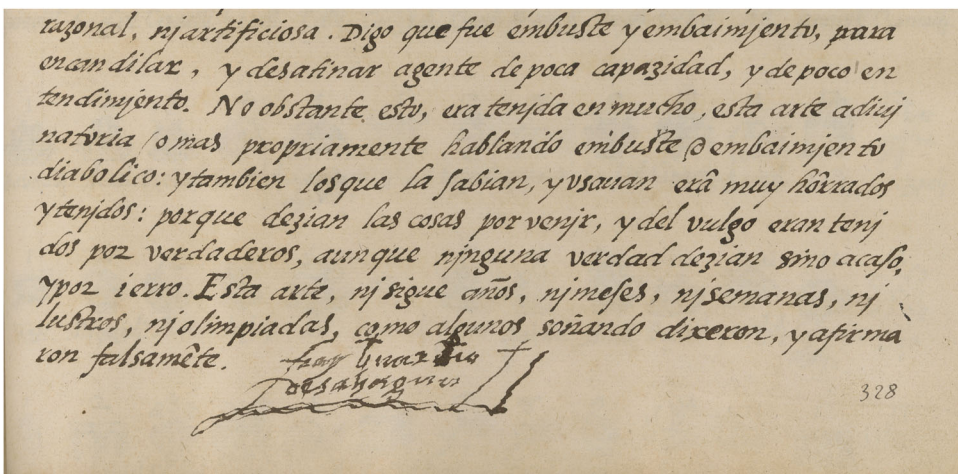 razonal, nj artificiosa. Digo que fue embuste y embaimjento, para
encandilar, y desatinar agente de poca capazidad, y de poco en
tendimjento. No obstante esto, era tenjda en mucho, esta arte adiuj
natoria (o mas propriamente hablando ẽbuste o embaimjento
diabolico: y tambien los que la sabian, y vsauan erã muy hõrrados
y tenjdos: porque dezian las cosas por venjr, y del vulgo eran tenj
dos por verdaderos, aunque njnguna verdad dezian sino acaso,
y por ierro. Esta arte, nj sigue años, nj meses, nj semanas, nj
lustros, nj olimpiadas, como algunos soñando dixeron, y afirma
ron falsamẽte.
fray
desahagun
328